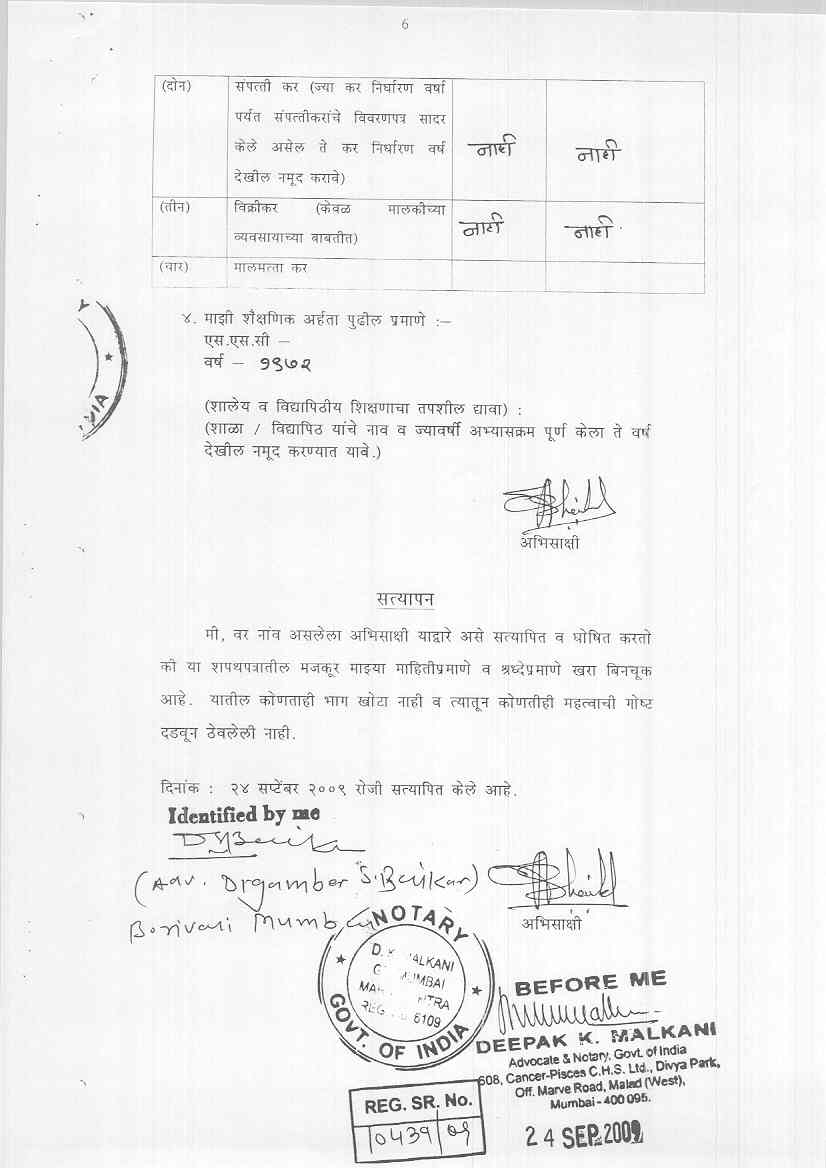 6
(दोन) संपत्ती कर (ज्या कर निर्धारण वर्षा
पर्यंत संपत्तीकरांचे विवरणपत्र सादर
केले असेल ते कर निर्धारण वर्ष नाही नाही
देखील नमूद करावे)
(तीन) विक्रीकर (केवळ मालकीच्या नाही नाही
व्यवसायाच्या बाबतीत)
(चार) मालमत्ता कर
४. माझी शैक्षणिक अर्हता पुढील प्रमाणे :–
एस.एस.सी –
वर्ष – १९७२
(शालेय व विद्यापिठीय शिक्षणाचा तपशील द्यावा) :
(शाळा / विद्यापिठ यांचे नाव व ज्यावर्षी अभ्यासक्रम पूर्ण केला ते वर्ष
देखील नमूद करण्यात यावे.)
अभिसाक्षी
सत्यापन
मी, वर नांव असलेला अभिसाक्षी याद्वारे असे सत्यापित व घोषित करतो
की या शपथपत्रातील मजकूर माझ्या माहितीप्रमाणे व श्रध्देप्रमाणे खरा बिनचूक
आहे. यातील कोणताही भाग खोटा नाही व त्यातून कोणतीही महत्वाची गोष्ट
दडवून ठेवलेली नाही.
दिनांक : २४ सप्टेंबर २००९ रोजी सत्यापित केले आहे.
Identified by me
(Adv. Digamber S. Baikar)
Borivali Mumbai
अभिसाक्षी
NOTARY
D. K. MALKANI
MUMBAI
REG. 6109
GOVT. OF INDIA
BEFORE ME
DEEPAK K. MALKANI
Advocate & Notary, Govt. of India
608, Cancer-Pisces C.H.S. Ltd., Divya Park,
Off. Marve Road, Malad (West),
Mumbai - 400 095.
REG. SR. No.
10439/09
24 SEP 2009